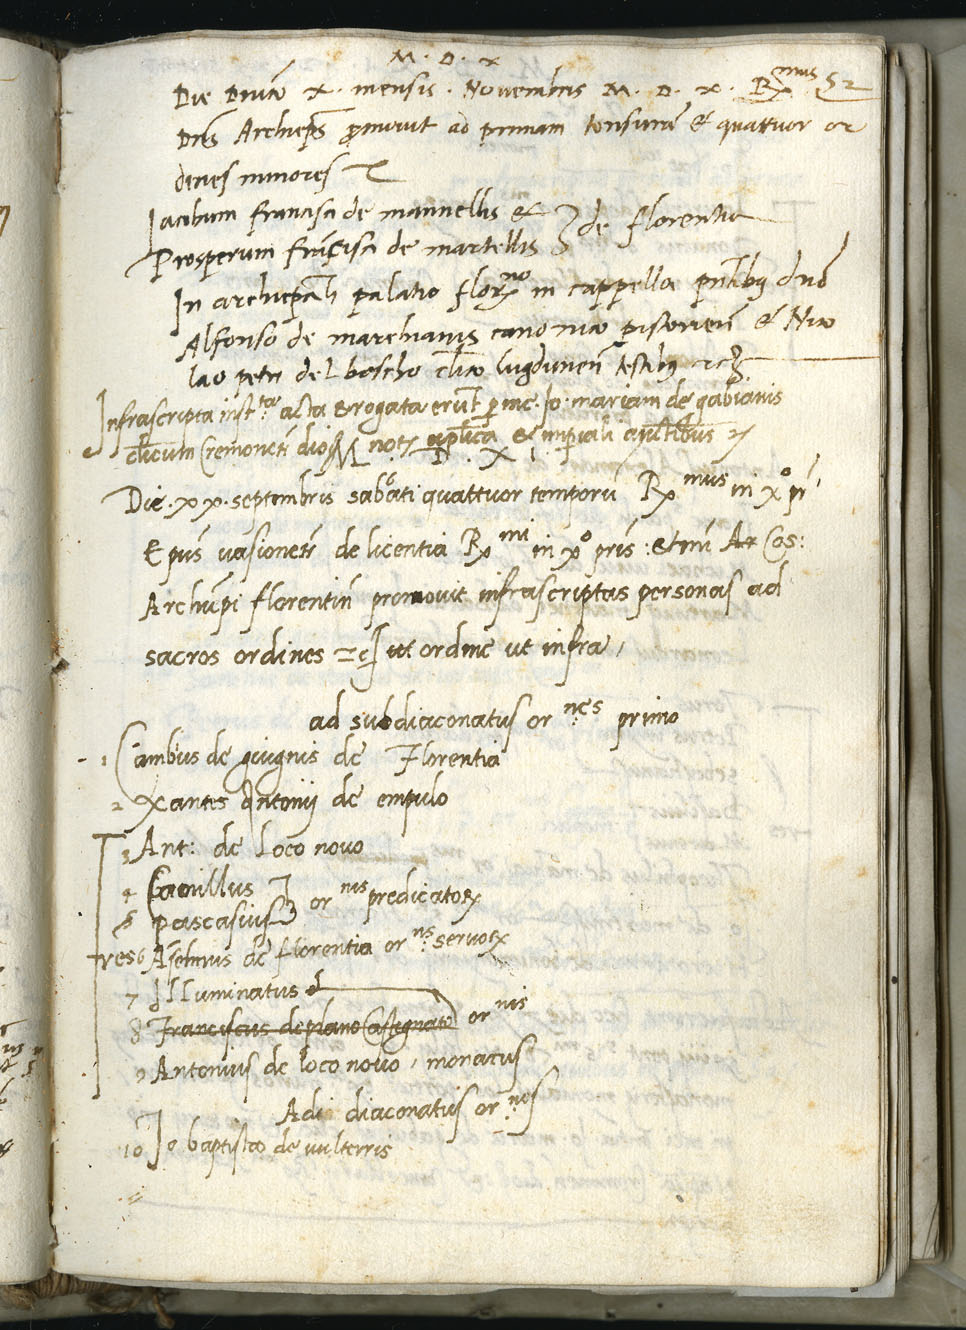 M. D. X
52
Die Dnica X. mensis. Novembris M. D. X. Rmus
Dns Archieps promovit ad primam tonsuram et quattuor or
dines minores
Iacobum francisci de mannellis et
Prosperum francisci de martellis } de florentia
In archiepali palatio florno in cappella pntibus dno
Alfonso de marchianis canonico pistorien et Nico
lao petri del boscho clico lugdunen testibus etc
Infrascripta instta acta & rogata erunt per me Io. mariam de gabianis
clicum Cremonen dio not aplica et imperiali auctibus
M D X
Die. xx. septembris sabbati quattuor temporu Rmus in xo pr
Epus vasionen de licentia Rmi in xo pris: et Cos:
Archiepi florentin promovit infrascriptas personas ad
sacros ordines ordine ut infra
ad subdiaconatus ornes primo
1 Cambius de giugnis de Florentia
2 Xantes Antonij de empulo
3 Ant: de Loco novo
4 Camillus
5 pascasius } or nis predicator
tres 6 de florentia or nis servor
7 Illuminatus
8 Franciscus de plano Castagnaio or nis
9 Antonius de loco novo, monacus
Adi diaconatus or nes
10 Io baptista de vulterris